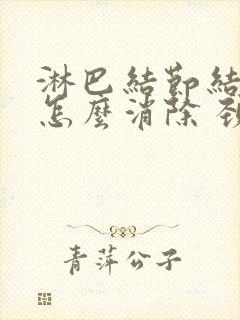 淋巴結節結
怎麼消除 頸
青萍公子